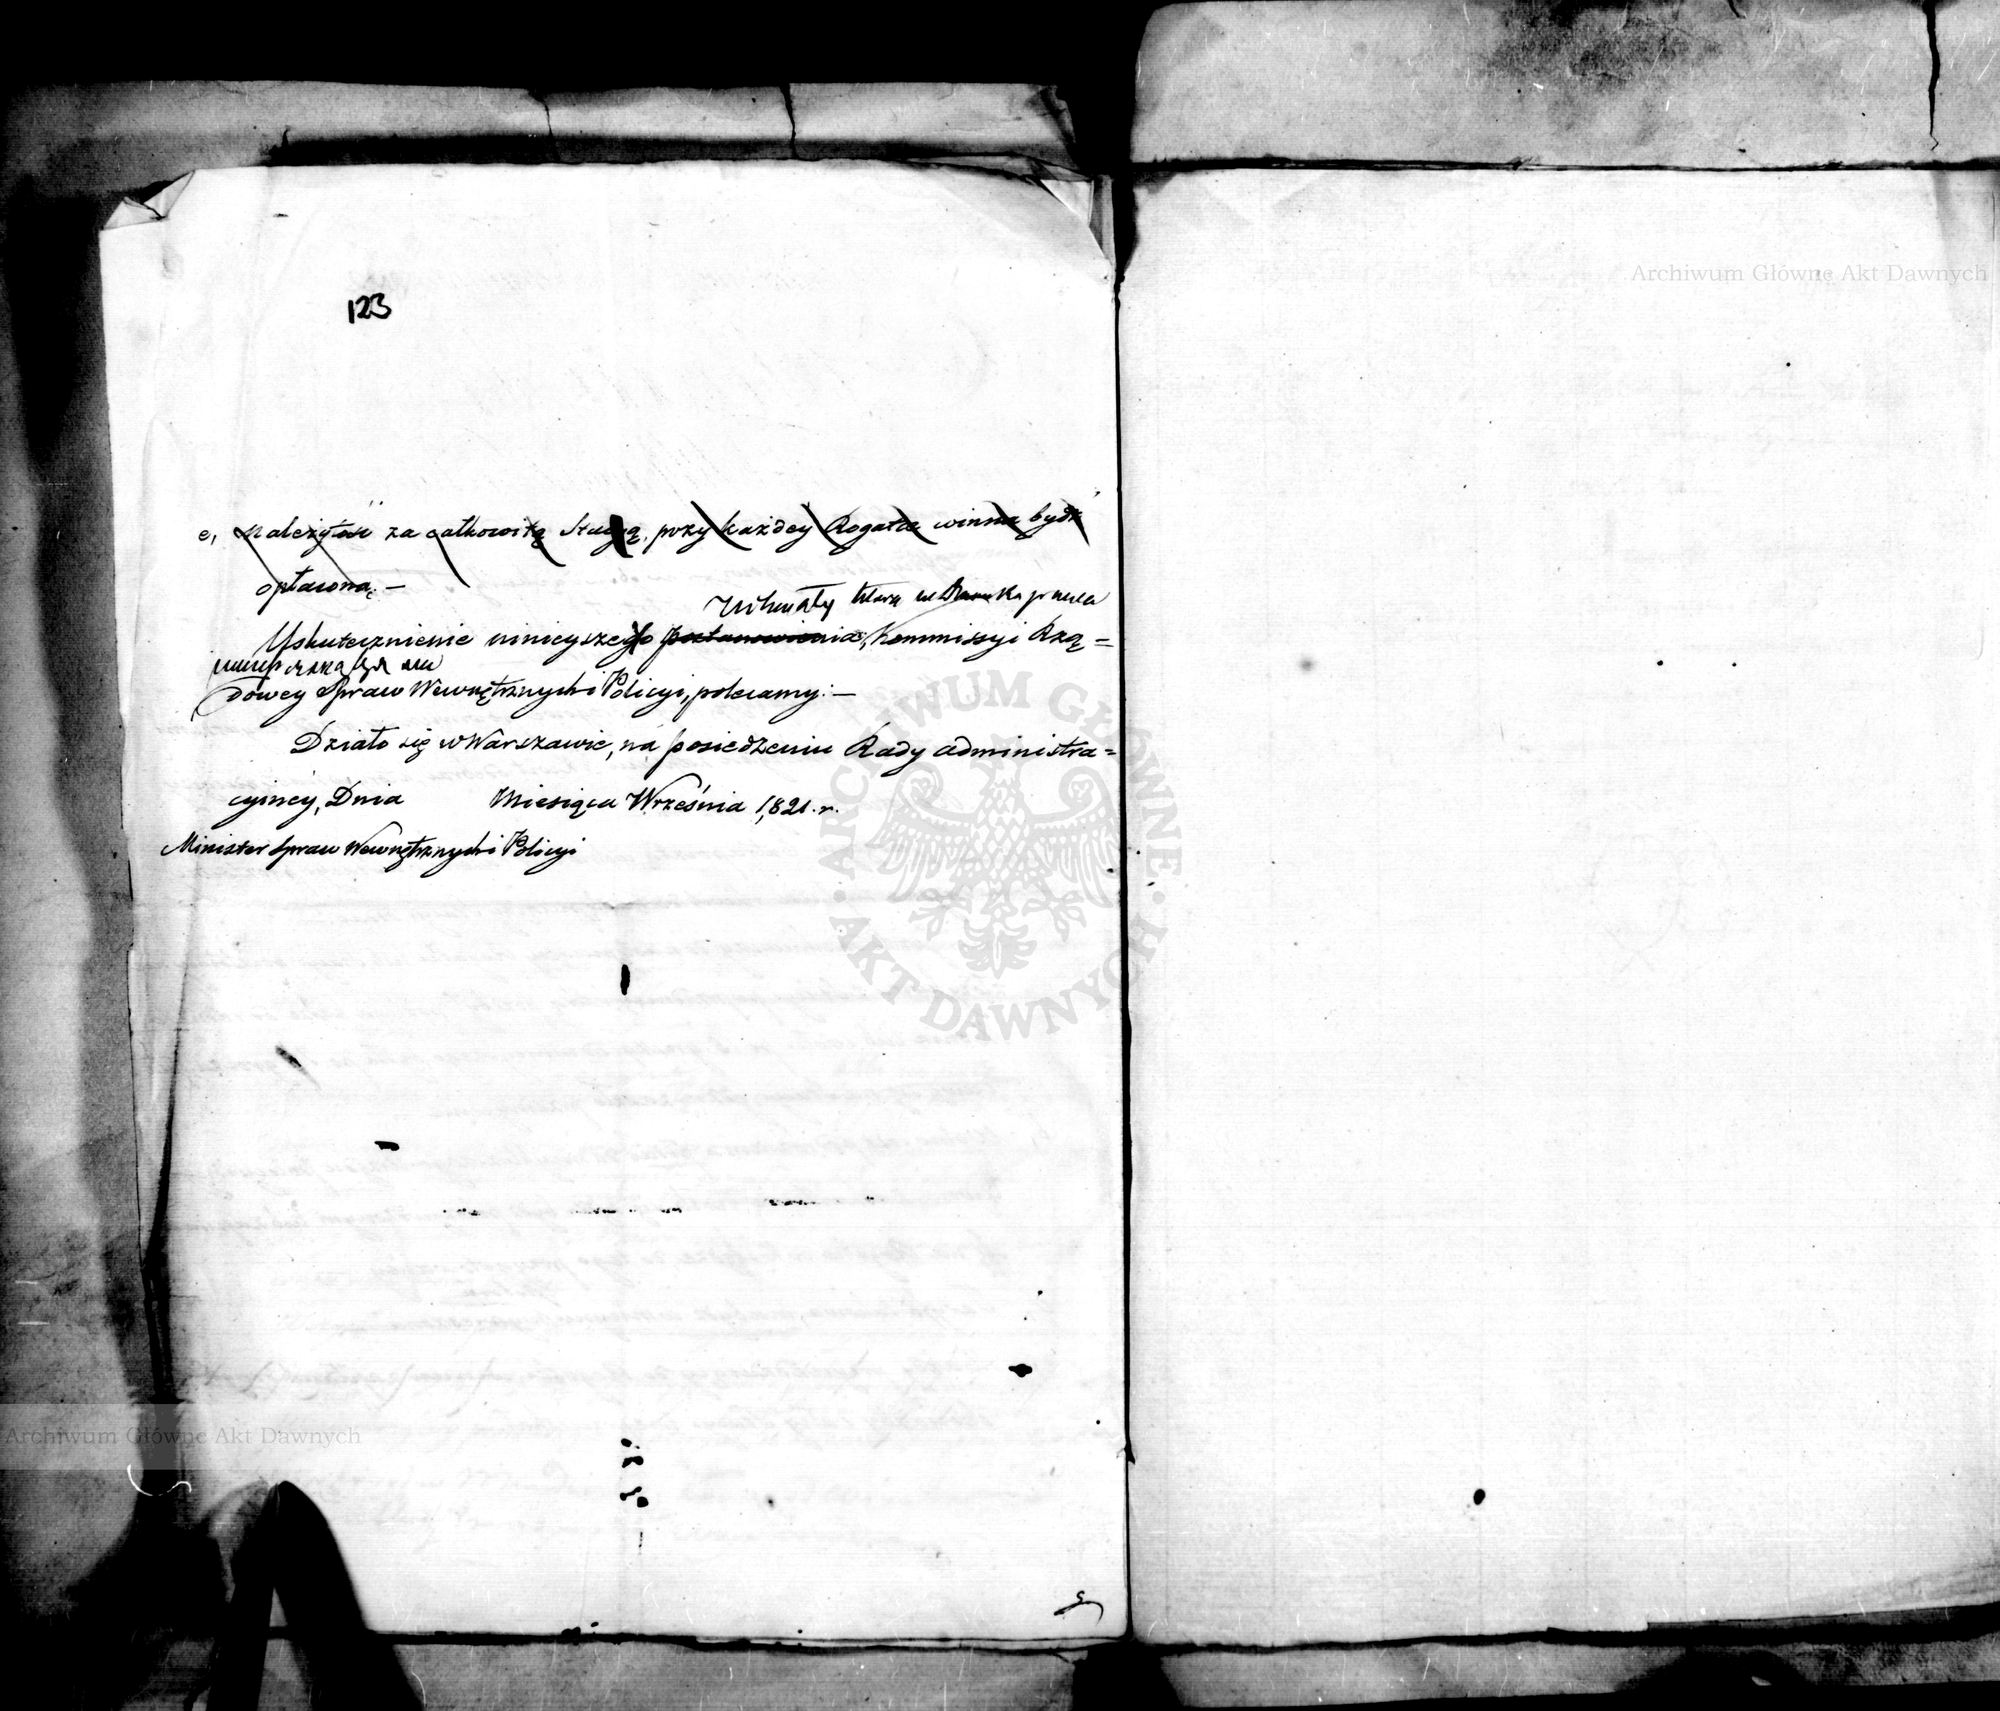 123
Archiwum Główne Akt Dawnych
e, Należytość za całkowitą Stacyą, przy każdey Rogatce winna bydź
opłaconą. —
Uchwały która w
Uskutecznienie ninieyszego postanowienia, Kommissyi Rzą=
dowey Spraw Wewnętrznych i Policyi, polecamy: —
Działo się w Warszawie, na posiedzeniu Rady administra=
cyiney, Dnia Miesiąca Września 1821. r.
Minister Spraw Wewnętrznych i Policyi
ARCHIWUM GŁÓWNE · AKT DAWNYCH ·
Archiwum Główne Akt Dawnych